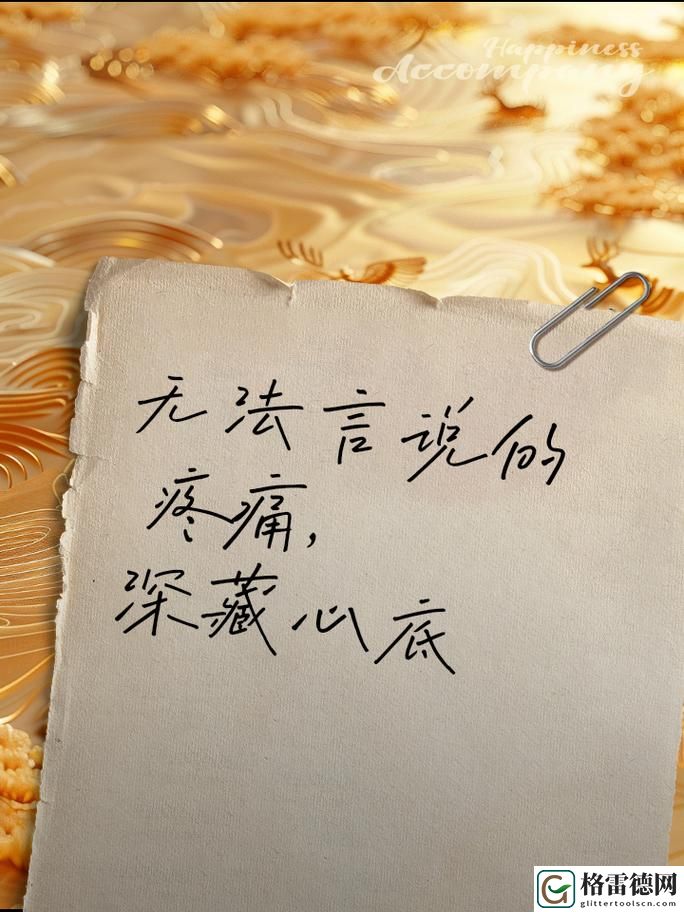 Happiness
Accompany
无法言说的
疼痛，
深藏心底
格雷德网
glittertoolscn.com